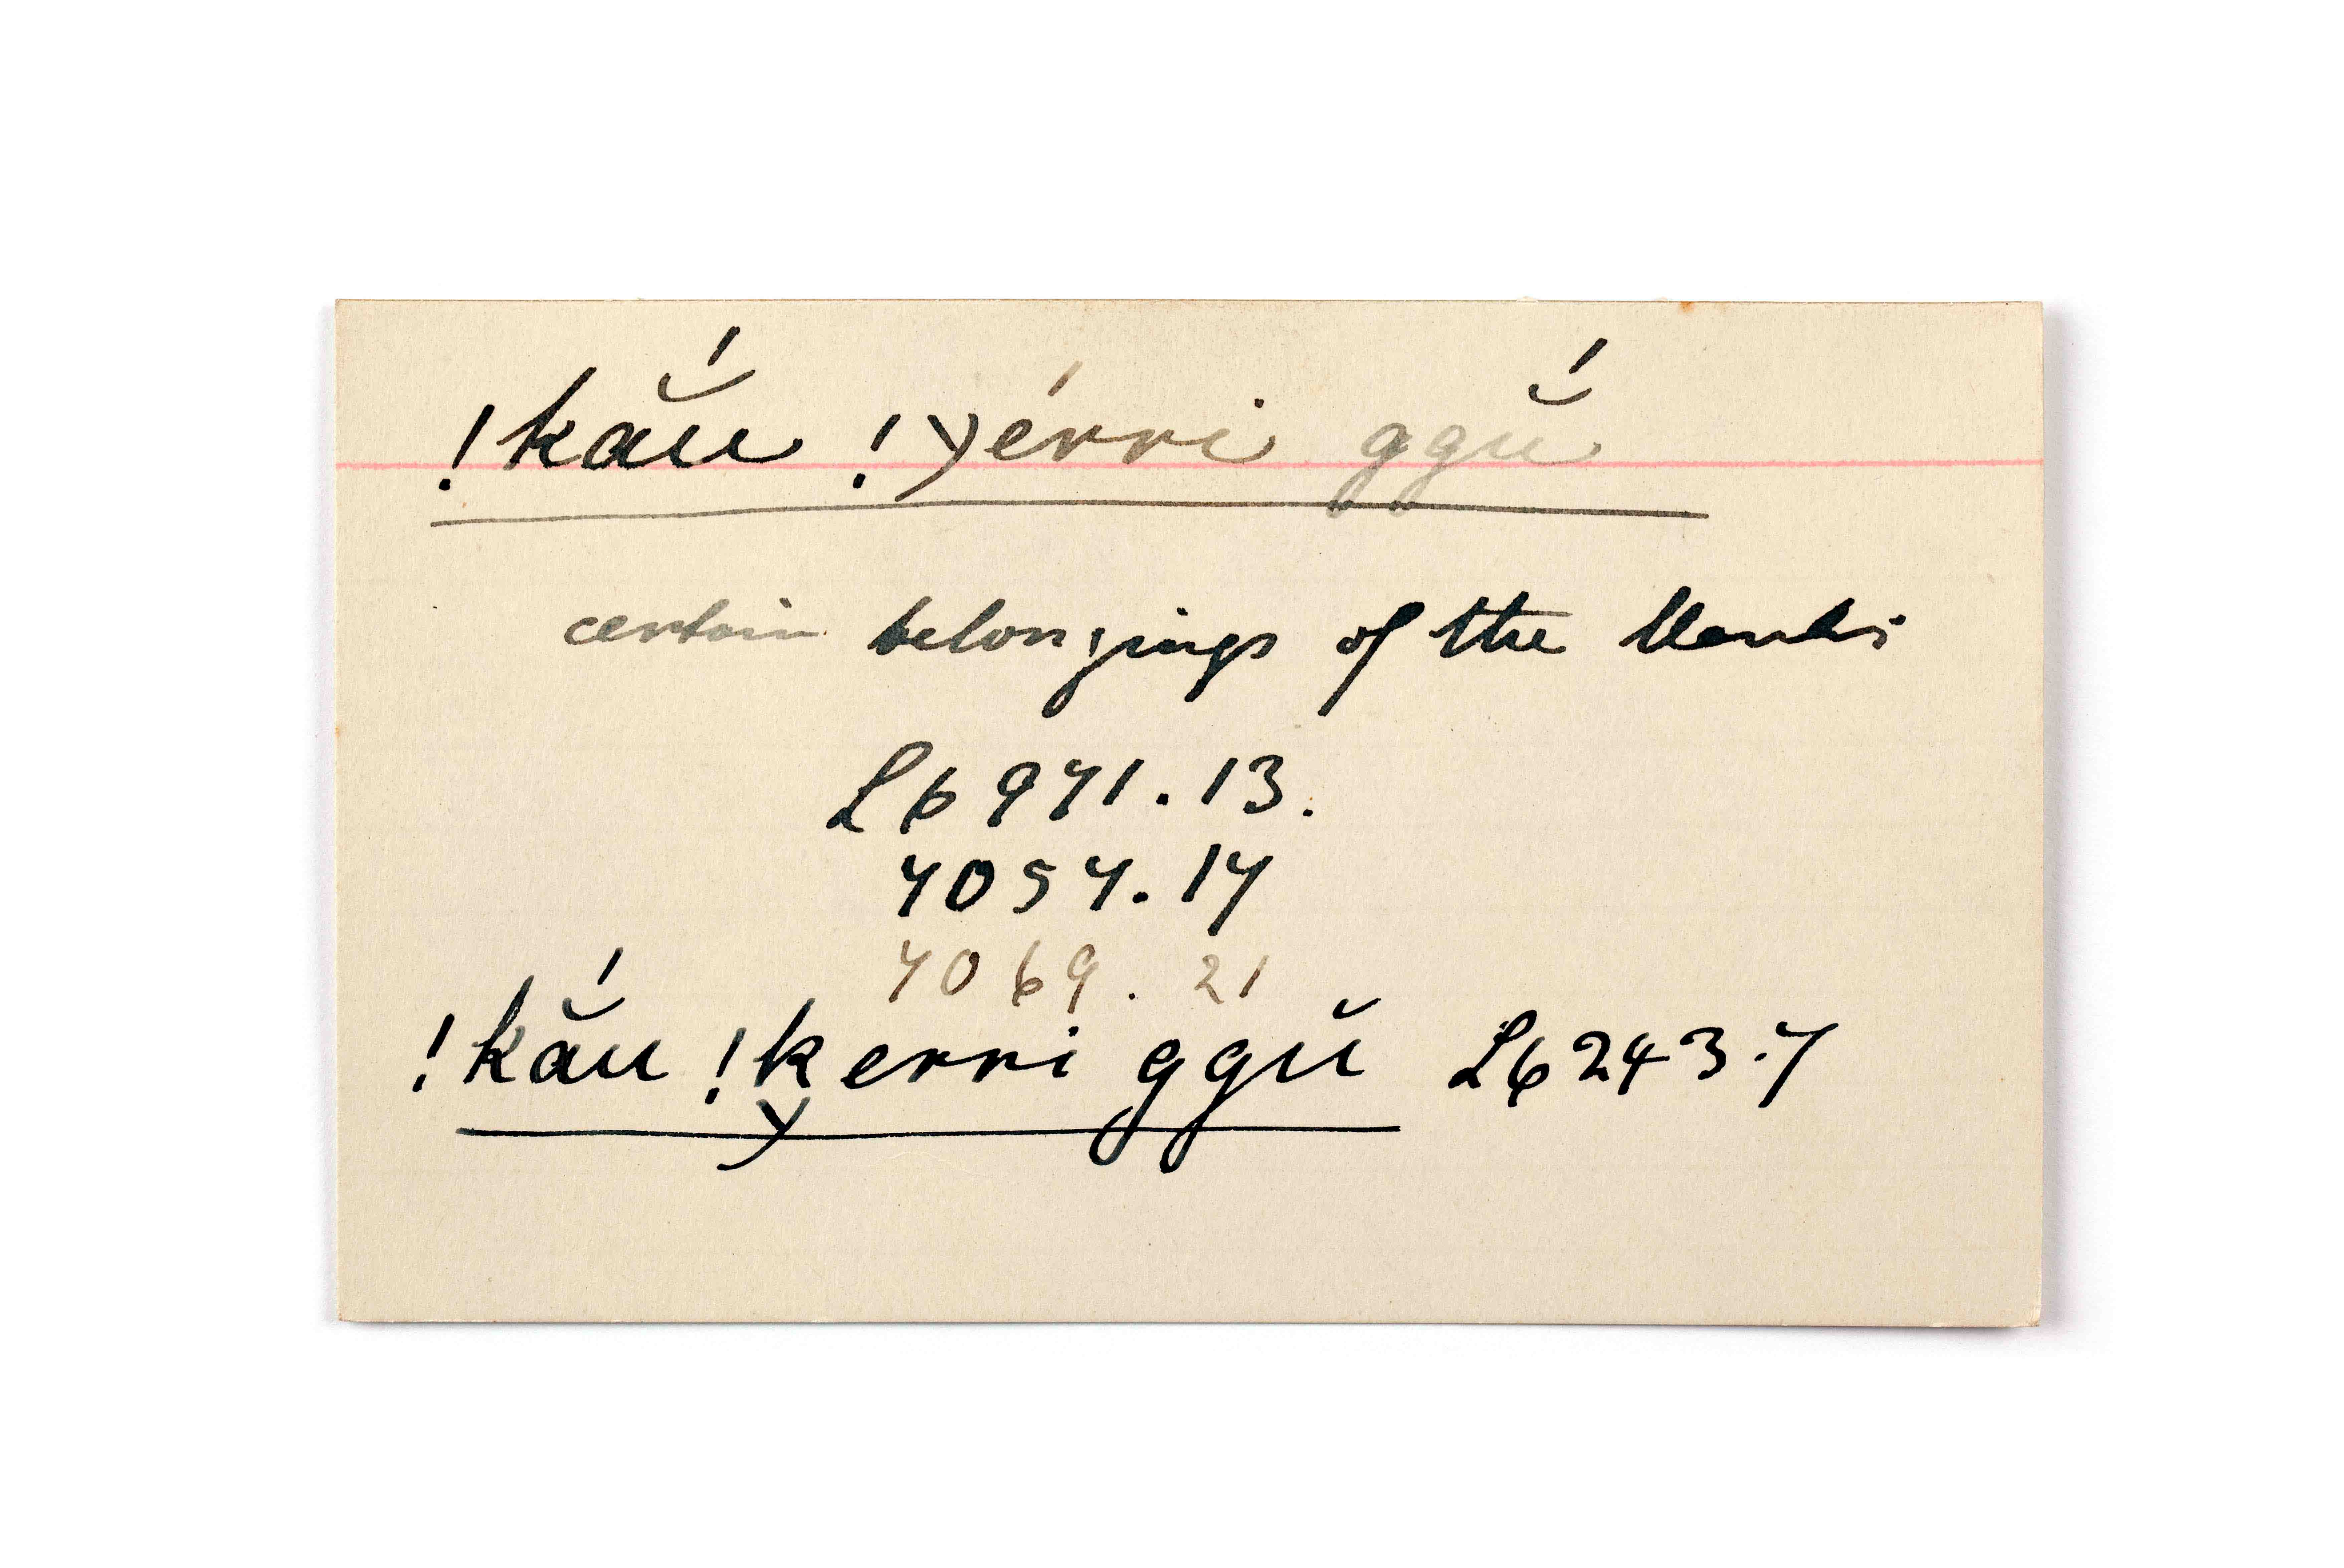 !kắu !χérri ggŭ́
certain belongings of the Mantis
L6 941.13.
4054.14
4069.21
!kắu !kerri ggŭ L6 243.7
χ